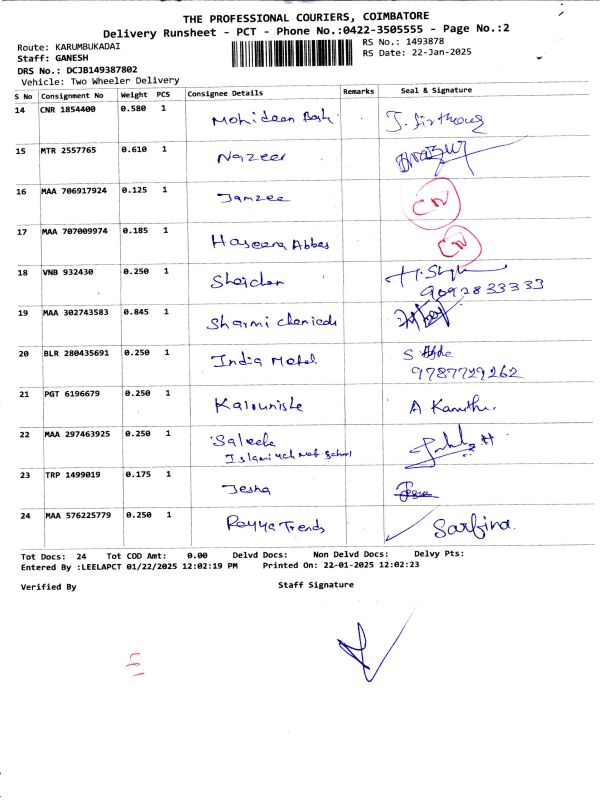 THE PROFESSIONAL COURIERS, COIMBATORE
Delivery Runsheet - PCT - Phone No.:0422-3505555 - Page No.:2
Route: KARUMBUKADAI
RS No.: 1493878
Staff: GANESH
RS Date: 22-Jan-2025
DRS No.: DCJB149387802
Vehicle: Two Wheeler Delivery
S No Consignment No Weight PCS Consignee Details Remarks Seal & Signature
14 CNR 1854400 0.580 1 Mohideen
15 MTR 2557765 0.610 1 Nazeer
16 MAA 706917924 0.125 1 Jamzee CN
17 MAA 707009974 0.185 1 Haseena Abbas CN
18 VNB 932430 0.250 1
9092833333
19 MAA 302743583 0.845 1 Sharmi
20 BLR 280435691 0.250 1 India
9787729262
21 PGT 6196679 0.250 1 A
22 MAA 297463925 0.250 1
23 TRP 1499019 0.175 1
24 MAA 576225779 0.250 1 Trends Sarfina
Tot Docs: 24 Tot COD Amt: 0.00 Delvd Docs: Non Delvd Docs: Delvy Pts:
Entered By :LEELAPCT 01/22/2025 12:02:19 PM Printed On: 22-01-2025 12:02:23
Verified By Staff Signature